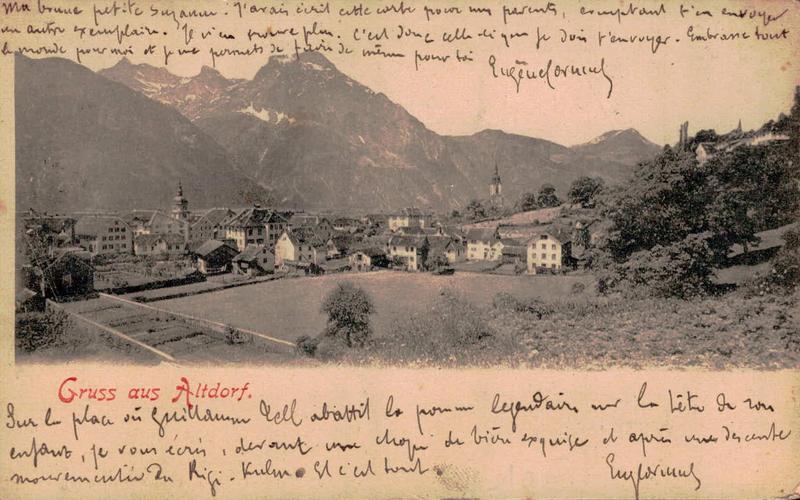 Ma bonne petite Suzanne : J'avais écrit cette carte pour mes parents, comptant t'en envoyer
un autre exemplaire. Je n'en trouve plus. C'est donc celle-ci que je dois t'envoyer. Embrasse tout
le monde pour moi et je me permets de faire de même pour toi
Eugène Cormul
Gruss aus Altdorf.
Sur la place où Guillaume Tell abattit la pomme légendaire sur la tête de son
enfant, je vous écris, devant une chope de bière exquise et après une descente
mouvementée du Rigi-Kulm. Et c'est tout.